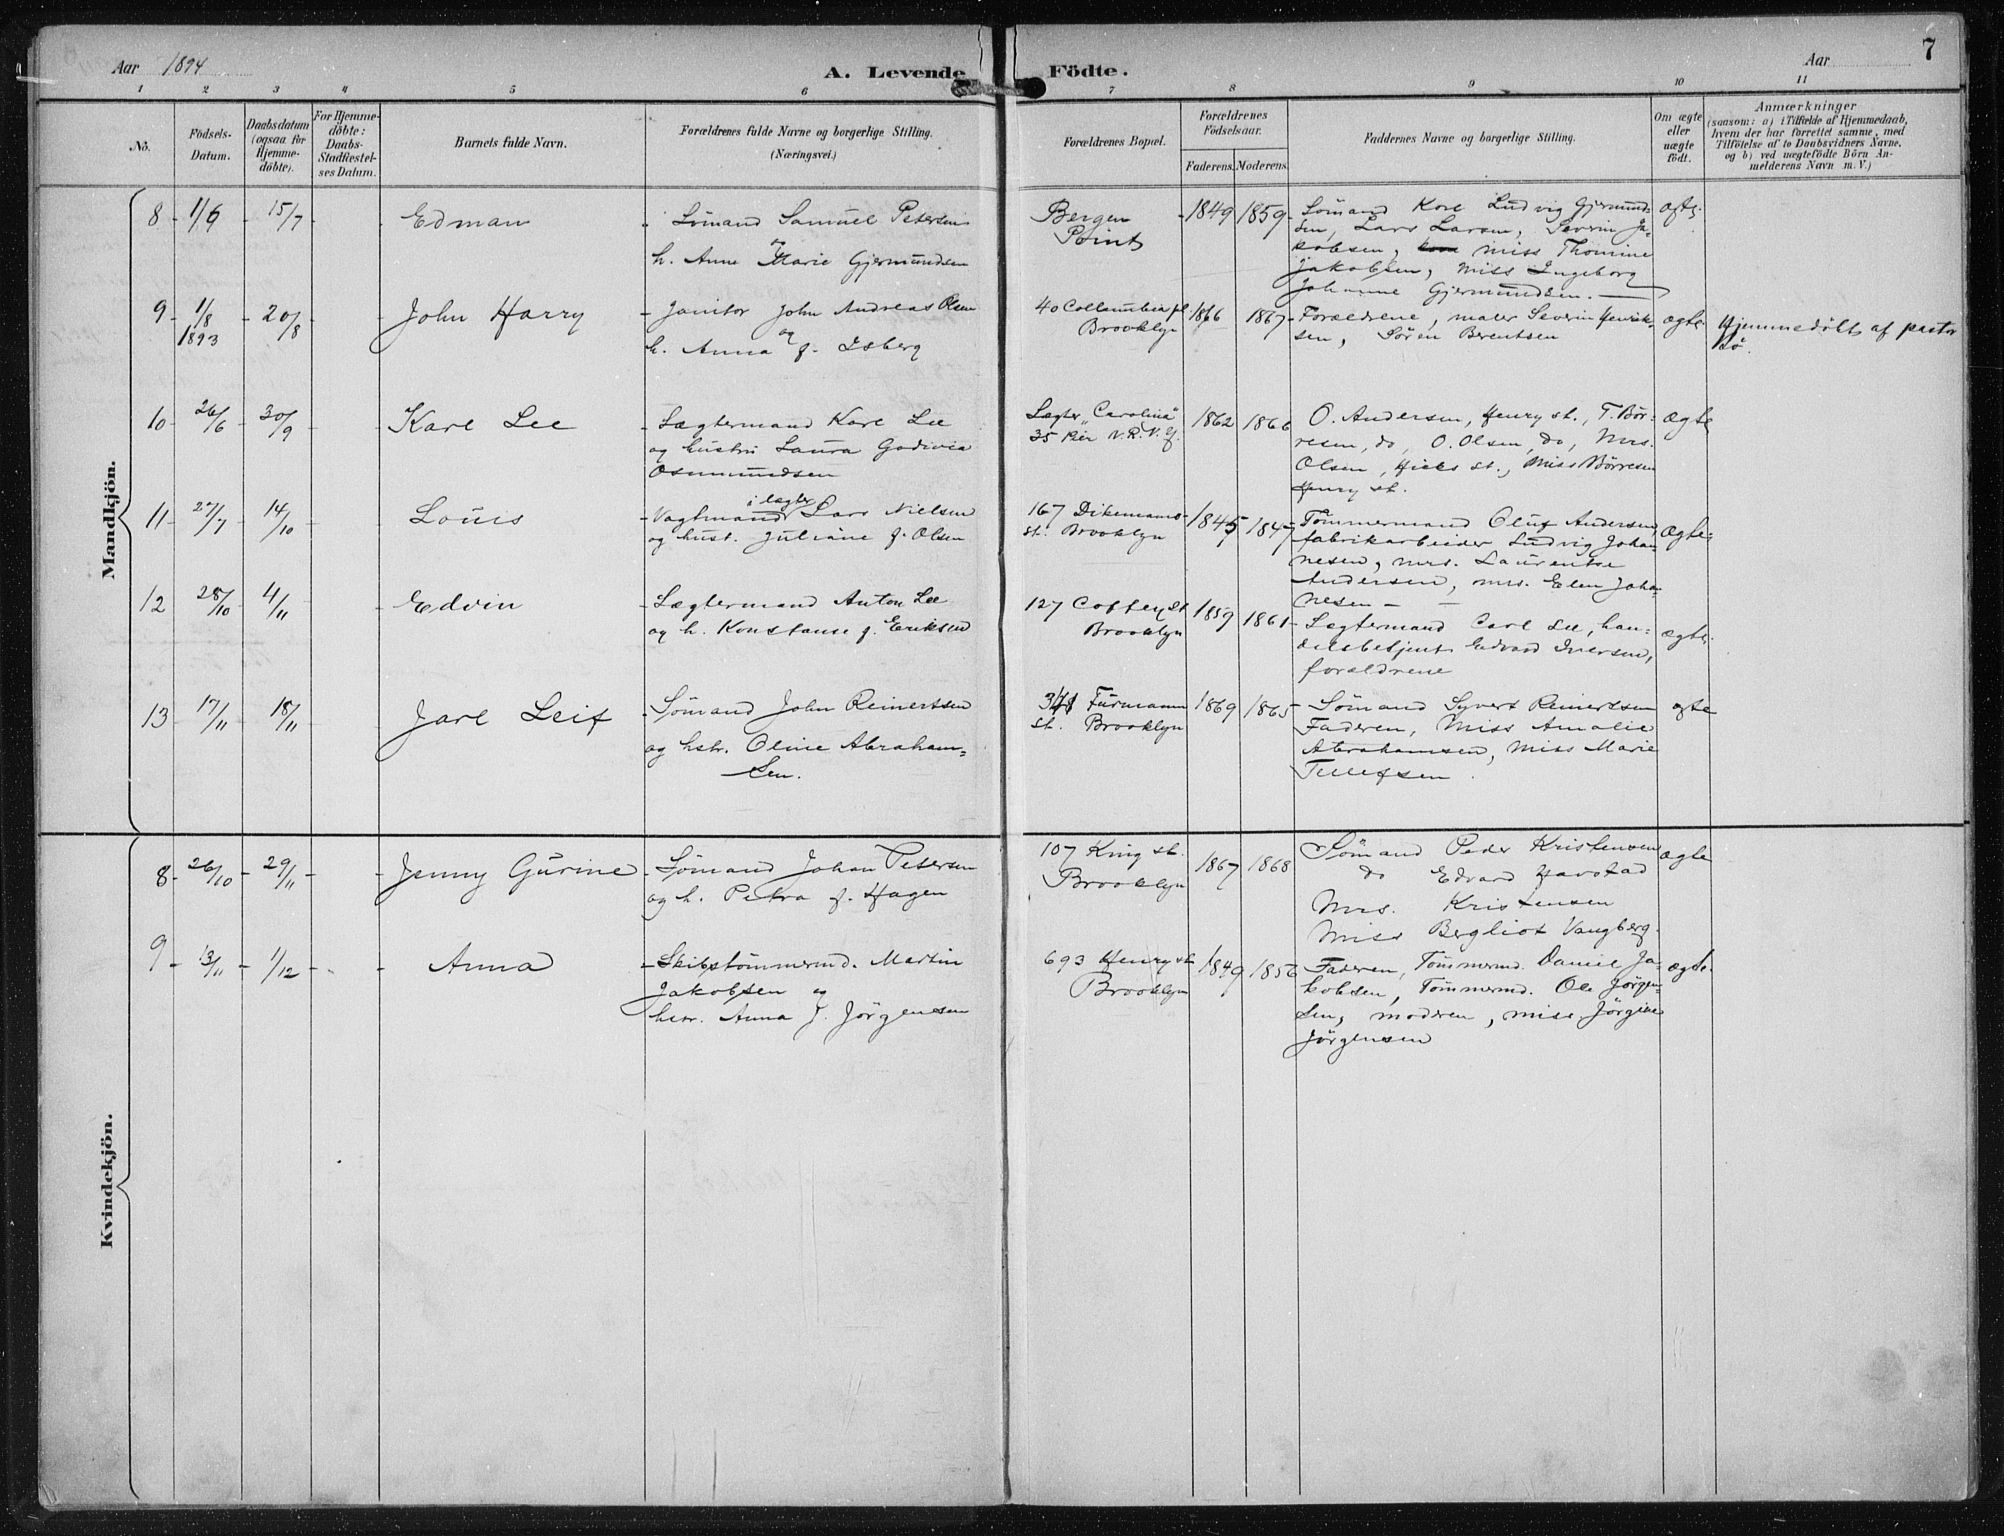 7
Aar 1894
A. Levende Födte.
Aar
1 2 3 4 5 6 7 8 9 10 11
No.
Födsels-Datum.
Daabsdatum (ogsaa for Hjemmedöbte).
For Hjemmedöbte: Daabs-Stadfæstelses Datum.
Barnets fulde Navn.
Forældrenes fulde Navne og borgerlige Stilling.
(Næringsvei.)
Forældrenes Bopæl.
Forældrenes Födselsaar.
Faderens. Moderens.
Faddernes Navne og borgerlige Stilling.
Om ægte eller uægte födt.
Anmærkninger
(saasom: a) i Tilfælde af Hjemmedaab,
hvem der har forrettet samme, med
Tilföielse af to Daabsvidners Navne,
og b) ved uægtefödte Börn An-
melderens Navn m.V.)
Mandkjön.
8 1/6 15/7 Edman
Sømand Samuel Petersen
og
h. Anne Marie Gjermundsen
Bergen
Point
1849 1859
Sømand Karl Ludvig Gjermund-
sen, Lars Larsen, Severin Ja-
kobsen, miss Thomine
Jakobsen, miss Ingeborg
Johanne Gjermundsen.
ægte
9 1/8 1893 20/8 John Harry
Janitor John Andreas Olsen
og
h. Anna f. Isberg
40 Collumbia pl
Brooklyn
1866 1867
Forældrene, maler Severin Henrik-
sen, Sören Berentsen
ægte
Hjemmedöbt af pastor
10 26/6 30/9 Karl Lee
Lægtermand Karl Lee
og hustru Laura Godivia
Osmundsen
Lægter "Carolina"
35 Pier N.R. N.Y.
1862 1866
O. Andersen, Henry st., T. Bör-
resen, do, O. Olsen, do, Mrs.
Olsen, Hicks st., Miss Börresen
Henry st.
ægte
11 27/7 14/10 Louis
i lægter
Vagtmand Lars Nielsen
og hust. Juliane f. Olsen
167 Dikemans
st. Brooklyn
1845 1847
Tömmermand Oluf Andersen,
fabrikarbeider Ludvig Joha-
nesen, mrs. Laurentse
Andersen, mrs. Elen Joha-
nesen
ægte
12 28/10 4/11 Edvin
Lægtermand Anton Lee
og h. Konstanse f. Eriksen
127 Coffey st
Brooklyn
1859 1861
Lægtermand Carl Lee, han-
delsbetjent Edvard Iversen,
forældrene
ægte
13 17/11 18/11 Jarl Leif
Sømand John Reinertsen
og hstr. Oline Abraham-
sen.
Furmann
st. Brooklyn
1869 1865
Sømand Syvert Reinertsen
Faderen, Miss Amalie
Abrahamsen, Miss Marie
Tellefsen
ægte
Kvindekjön.
8 26/10 29/11 Jenny Gurine
Sjømand Johan Petersen
og h. Petra f. Hagen
107 King st.
Brooklyn
1867 1868
Sømand Peder Kristensen
do Edvard Havstad
Mrs. Kristensen
Miss Bergliot Vangberg.
ægte
9 13/11 1/12 Anna
Skibstömmermd. Martin
Jakobsen og
hstr. Anna f. Jörgensen
693 Henry st
Brooklyn
1849 1856
Faderen, Tömmermd. Daniel Ja-
kobsen, Tömmermd. Ole Jörgen-
sen, moderen, miss Jörgine
Jörgensen
ægte